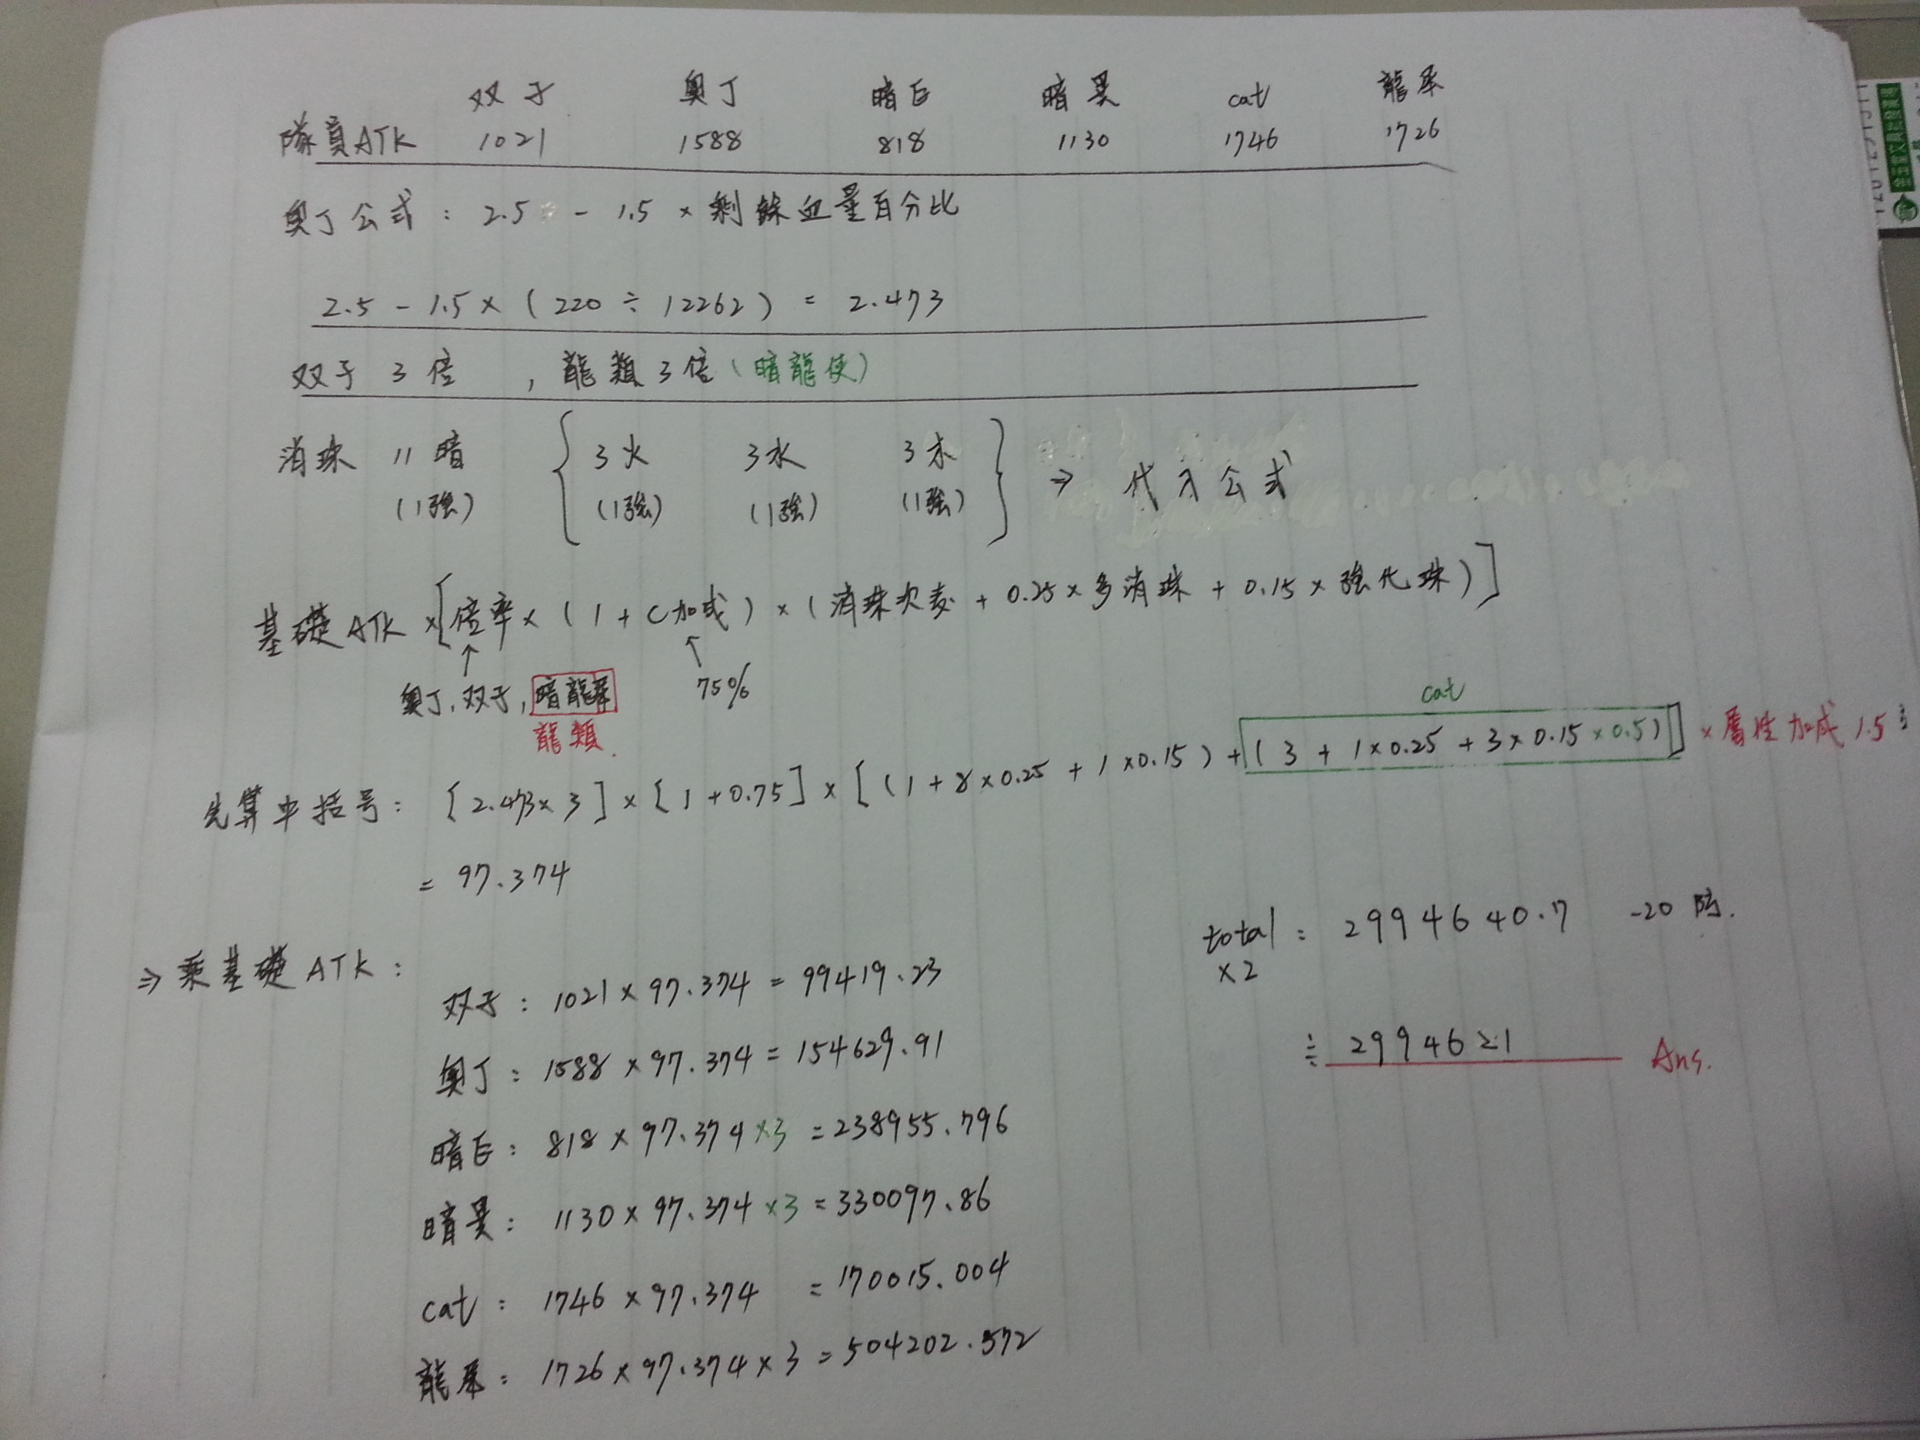 双子 奧丁 暗巨 暗異 cat 龍犀
隊員ATK 1021 1588 818 1130 1746 1726
奧丁公式 : 2.5 - 1.5 × 剩餘血量百分比
2.5 - 1.5 × ( 220 ÷ 12262 ) = 2.473
双子 3 倍 , 龍類 3 倍 (暗龍使)
消珠 11 暗 { 3 火 3 水 3 木 } ⇒ 代入公式
(1強) (1強) (1強) (1強)
基礎 ATK × [ 倍率 × ( 1 + C加成 ) × ( 消珠次數 + 0.25 × 多消珠 + 0.15 × 強化珠 ) ]
↑ ↑
奧丁, 双子, 暗龍犀 75%
龍類.
cat
先算中括号 : [ 2.473 × 3 ] × [ 1 + 0.75 ] × [ ( 1 + 8 × 0.25 + 1 × 0.15 ) + ( 3 + 1 × 0.25 + 3 × 0.15 × 0.5 ) ] × 屬性加成 1.5
= 97.374
total : 2994640.7 -20 防.
×2
⇒ 乘基礎 ATK :
双子 : 1021 × 97.374 = 99419.23
≒ 2994621 Ans.
奧丁 : 1588 × 97.374 = 154629.91
暗巨 : 818 × 97.374 ×3 = 238955.796
暗異 : 1130 × 97.374 ×3 = 330097.86
cat : 1746 × 97.374 = 170015.004
龍犀 : 1726 × 97.374 × 3 = 504202.572